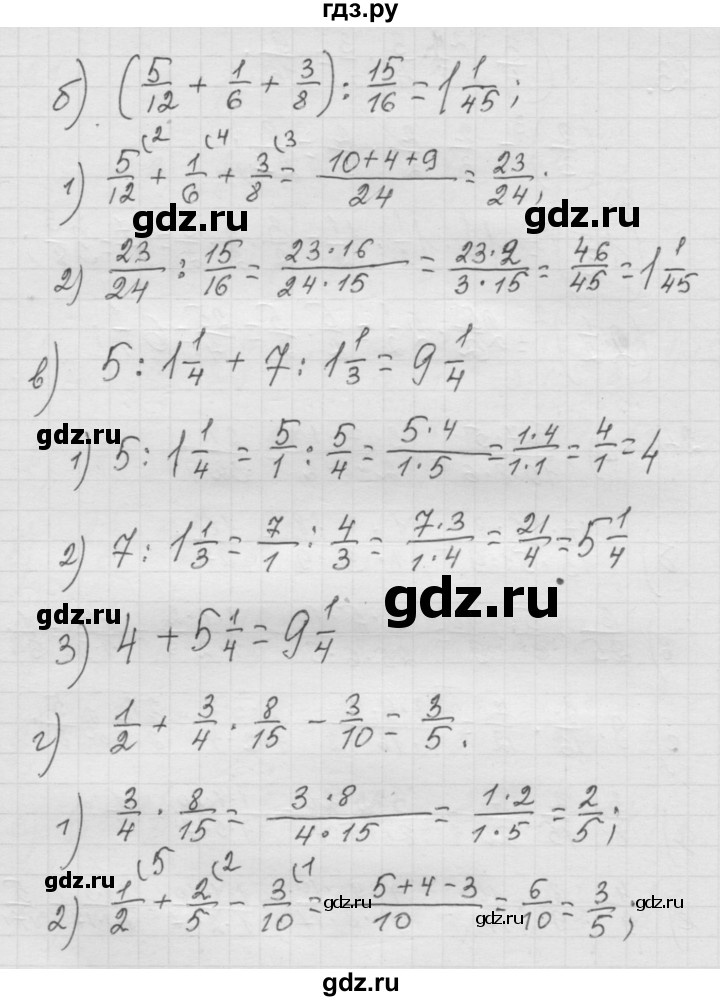 гдз.ру
б) (5/12 + 1/6 + 3/8) : 15/16 = 1 1/45;
1) 5/12 (2 + 1/6 (4 + 3/8 (3 = (10+4+9)/24 = 23/24;
gdz.ru gdz.ru
2) 23/24 : 15/16 = (23·16)/(24·15) = (23·2)/(3·15) = 46/45 = 1 1/45
в) 5 : 1 1/4 + 7 : 1 1/3 = 9 1/4
gdz.ru
1) 5 : 1 1/4 = 5/1 : 5/4 = (5·4)/(1·5) = (1·4)/(1·1) = 4/1 = 4
2) 7 : 1 1/3 = 7/1 : 4/3 = (7·3)/(1·4) = 21/4 = 5 1/4
gdz.ru
3) 4 + 5 1/4 = 9 1/4
г) 1/2 + 3/4 · 8/15 - 3/10 = 3/5.
1) 3/4 · 8/15 = (3·8)/(4·15) = (1·2)/(1·5) = 2/5;
2) 1/2 (5 + 2/5 (2 - 3/10 (1 = (5+4-3)/10 = 6/10 = 3/5;
gdz.ru gdz.ru gdz.ru gdz.ru
gdz.ru